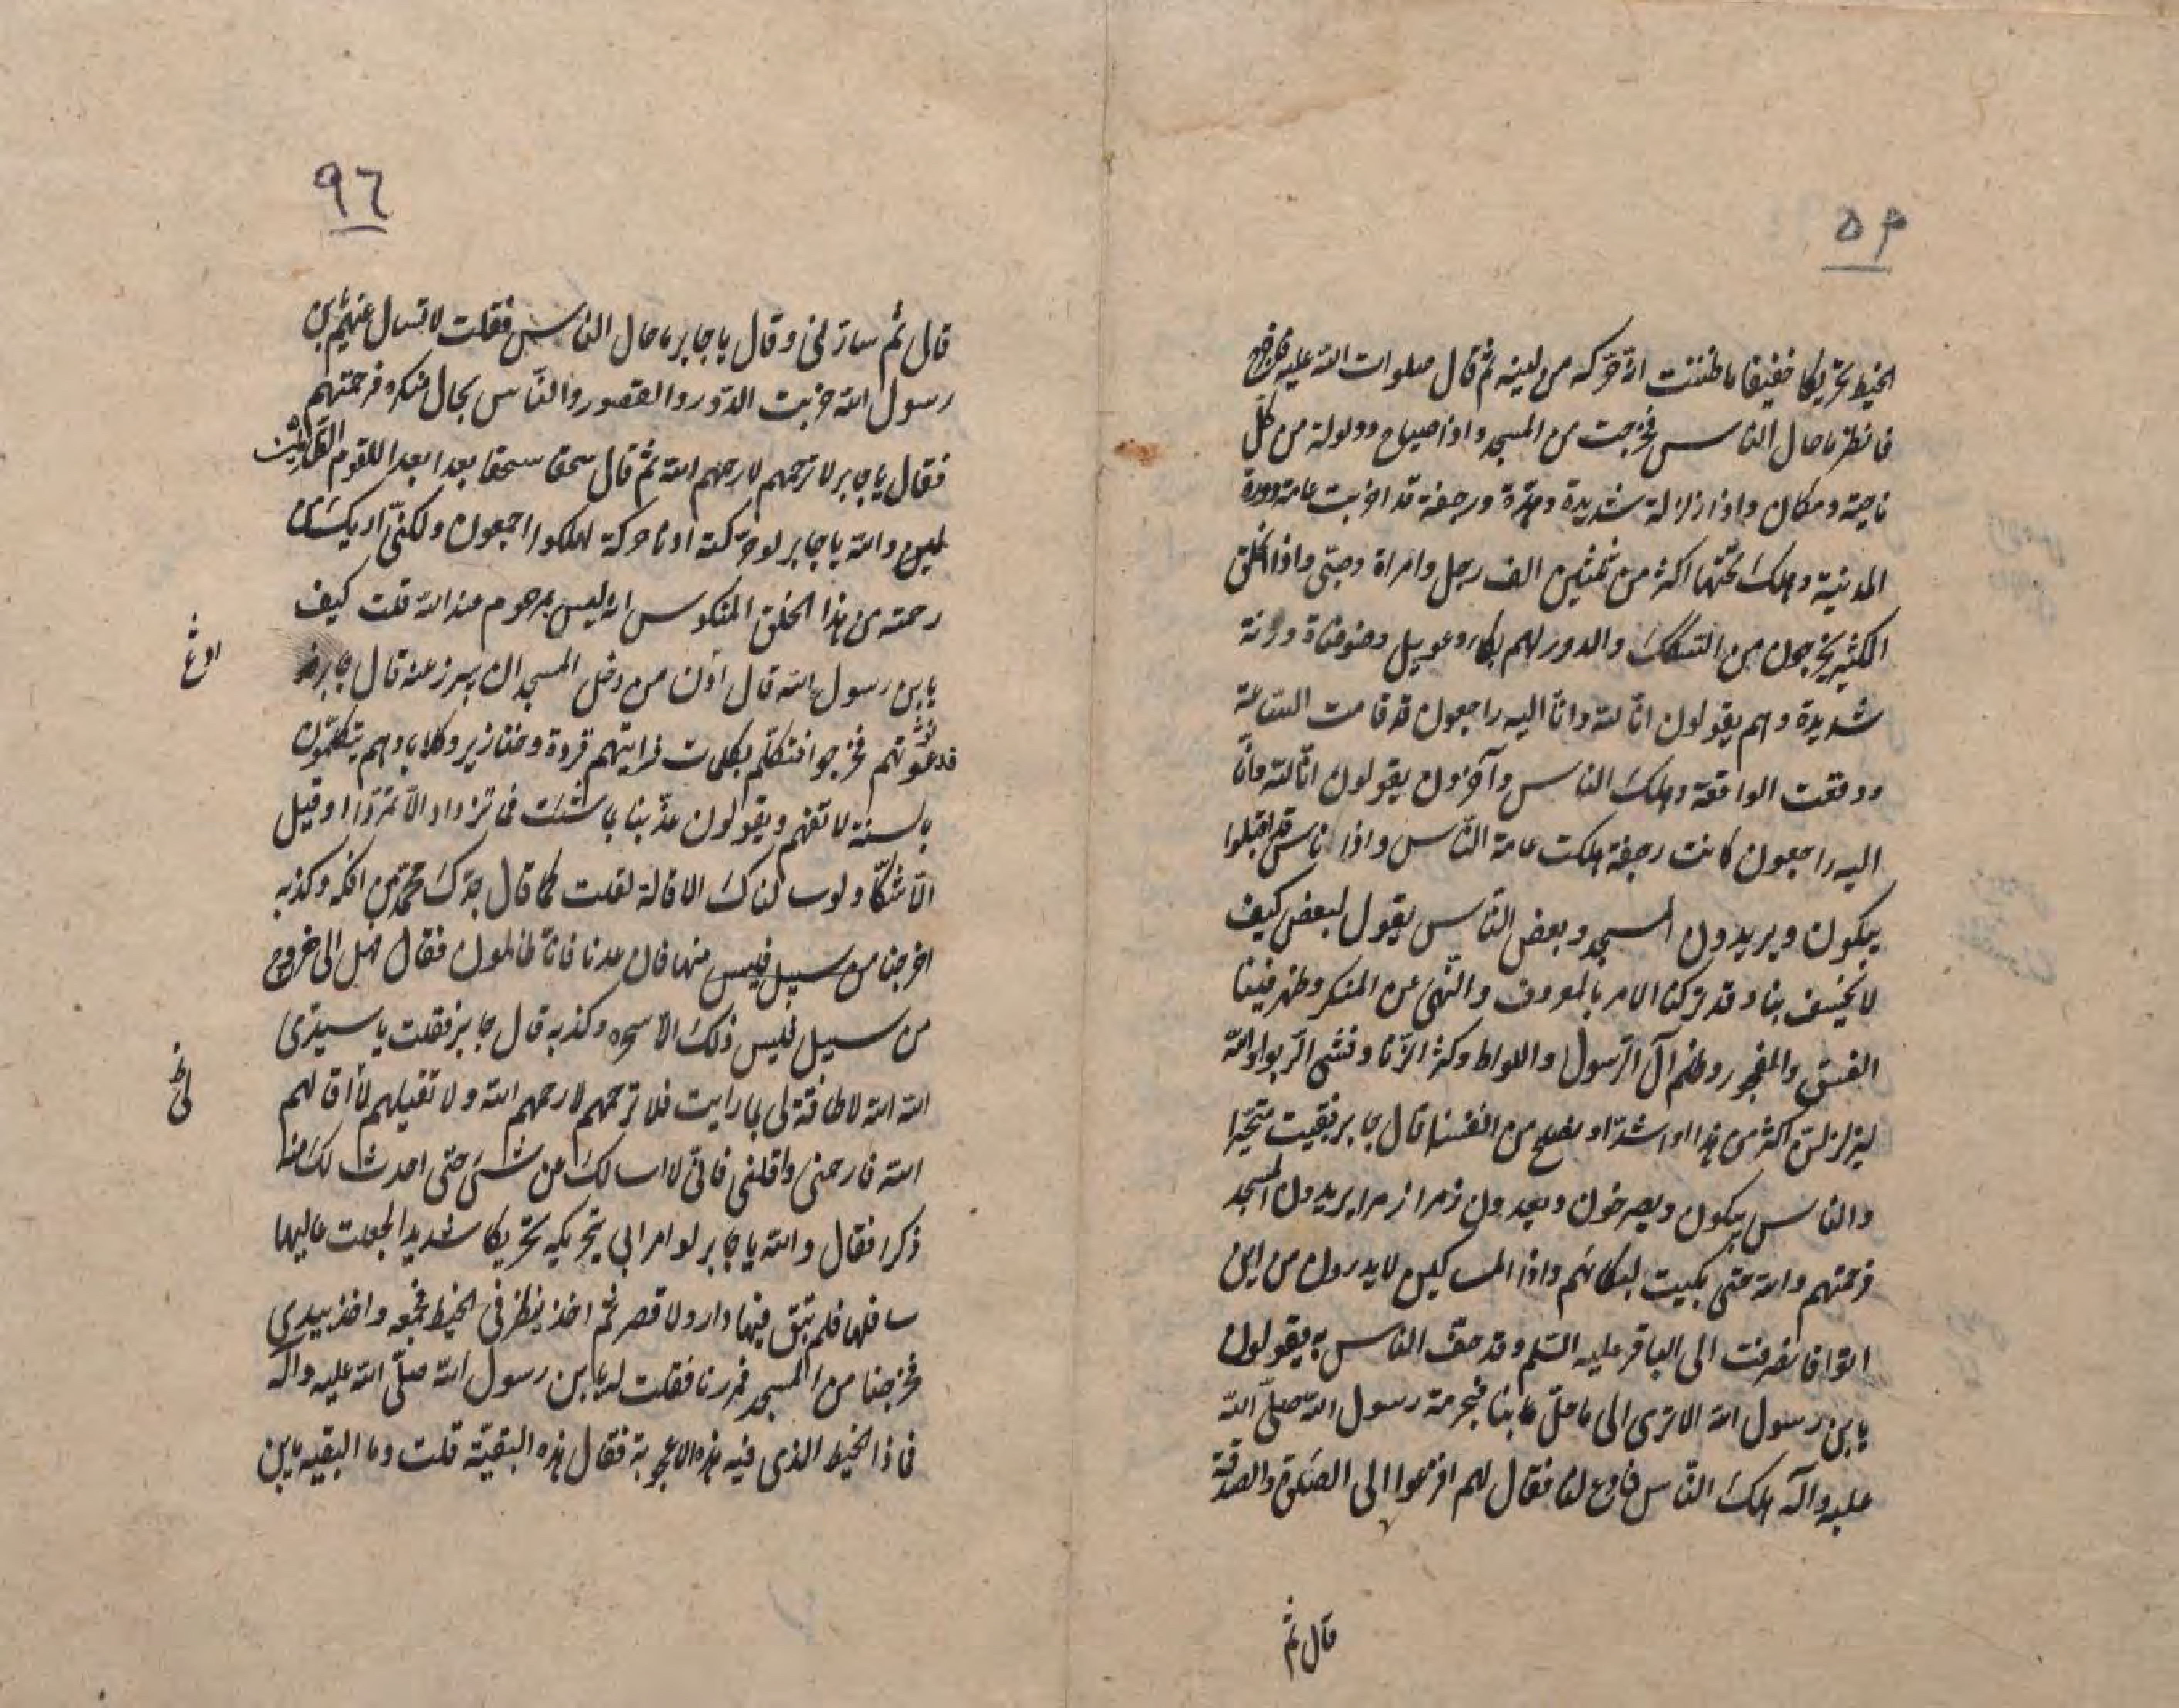 ٥٣
الخيط تحريكا خفيفا ما ظننت انه حركه من لينه ثم قال صلوات الله عليه اخرج
فانظر ما حال الناس فخرجت من المسجد واذا صياح وولولة من كل
ناحية ومكان واذا زلزلة شديدة وهدة ورجفة قد اخربت عامة دور
المدينة وهلك تحتها اكثر من ثلثين الف رجل وامراة وصبي واذا الخلق
الكثير يخرجون من السكك والدور لهم بكاء وعويل وضوضاة ورنة
شديدة وهم يقولون انا لله وانا اليه راجعون قد قامت الساعة
ووقعت الواقعة وهلك الناس وآخرون يقولون انا لله وانا
اليه راجعون كانت رجفة هلكت عامة الناس واذا ناس قد اقبلوا
يبكون ويريدون المسجد وبعض الناس يقول لبعض كيف
لا يخسف بنا وقد تركنا الامر بالمعروف والنهى عن المنكر وظهر فينا
الفسق والفجور وظلم آل الرسول واللواط وكثر الزنا وفشى الربوا والله
ليزلزلن اكثر من هذا او اشد او نصلح من انفسنا قال جابر فبقيت متحيرا
والناس يبكون ويصرخون ويعدون زمرا زمرا يريدون المسجد
فرحمتهم والله حتى بكيت لبكائهم واذا المساكين لا يدرون من اين
اتوا فانصرفت الى الباقر عليه السلم وقد حف الناس به يقولون
يابن رسول الله الا ترى الى ما حل بنا فبحرمة رسول الله صلى الله
عليه وآله هلك الناس فادع لنا فقال لهم افزعوا الى الصلوة والصدقة
قال ثم
٩٦
قال ثم سار لى وقال يا جابر ما حال الناس فقلت لا تسال عنهم يابن
رسول الله خربت الدور والقصور والناس بحال منكره فرحمتهم
فقال يا جابر لا ترحمهم لا رحمهم الله ثم قال سحقا سحقا بعدا بعدا للقوم الظالمين
والله يا جابر لو حركته ادنا حركة لهلكوا اجمعون ولكنى اريك من
رحمته من هذا الخلق المنكوس انه ليس بمرحوم عند الله قلت كيف
يابن رسول الله قال اذن من دخل المسجد ان يبرز عنه قال جابر
فدعوتهم فخرجوا فتكلم بكلمات فرايتهم قردة وخنازير وكلابا وهم يتكلمون
بالسنة لا تفهم ويقولون عذبنا بما شئت فما تزداد الا تمردا وقيل
الا شكا ولو سالناك الاقالة لقلت كما قال جدك محمد من افكه وكذبه
اخرجنا من سبيل فليس منها فان عدنا فانا ظالمون فقال هل الى خروج
من سبيل فليس ذلك الا سحره وكذبه قال جابر فقلت يا سيدى
الله الله لا طاقة لى بما رايت فلا ترحمهم لا رحمهم الله ولا تقيلهم لا اقالهم
الله فارحمنى واقلنى فانى لا اسالك عن شىء حتى احدث لك منه
ذكرا فقال والله يا جابر لو امر ابى بتحريكه تحريكا شديدا لجعلت عاليها
سافلها فلم تبق فيها دار ولا قصر ثم اخذ ينظر فى الخيط فجمعه واخذ بيدى
فخرجنا من المسجد فمررنا فقلت له يابن رسول الله صلى الله عليه وآله
فما ذا الخيط الذى فيه هذه الاعجوبة فقال هذه البقية قلت وما البقيه يابن